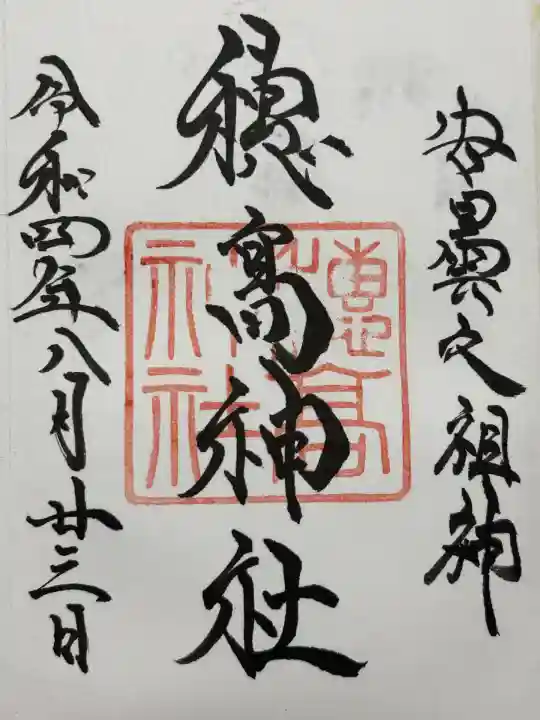 安曇野之祖神
穂高神社
穗高神社
令和四年八月廿三日